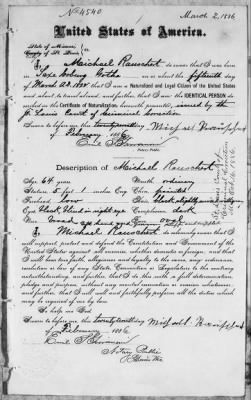 No 4540
March 2, 1886
United States of America.
State of Missouri
County of St. Louis } ss.
I, Michael do swear that I was born
in Saxe Coburg Gotha on or about the fifteenth day of
March that I am a Naturalized and Legal Citizen of the United States
and about to travel abroad, and further, that I am the IDENTICAL PERSON de-
scribed in the Certificate of Naturalization herewith presented, issued by the
St. Louis Court of Criminal Correction
Sworn to before me this day
of February 1886
Notary Public.
Description of Michael
Age 64 years Mouth ordinary
Stature 5 feet 1 inches Eng. Chin pointed
Forehead low Hair black slightly
Eyes black blind in right eye Complexion dark
Nose Face oval
I, Michael do solemnly swear that I
will support, protect and defend the Constitution and Government of the
United States against all enemies, whether domestic or foreign; and that
I will bear true faith, allegiance and loyalty to the same, any ordinance,
resolution or law of any State Convention or Legislature to the contrary
notwithstanding; and further, that I do this with a full determination,
pledge and purpose, without any mental reservation or evasion whatsoever,
and further, that I will well and faithfully perform all the duties which
may be required of me by law.
So help me God
Sworn to before me, this day
of February 1886
Notary Public
St Louis Mo.